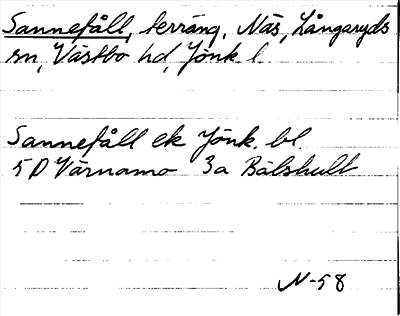 Sannefåll, terräng, Näs, Långaryds
sn, Västbo hd, Jönk. l.
Sannefåll ek Jönk. bl.
5D Värnamo 3a Bälshult
N-58